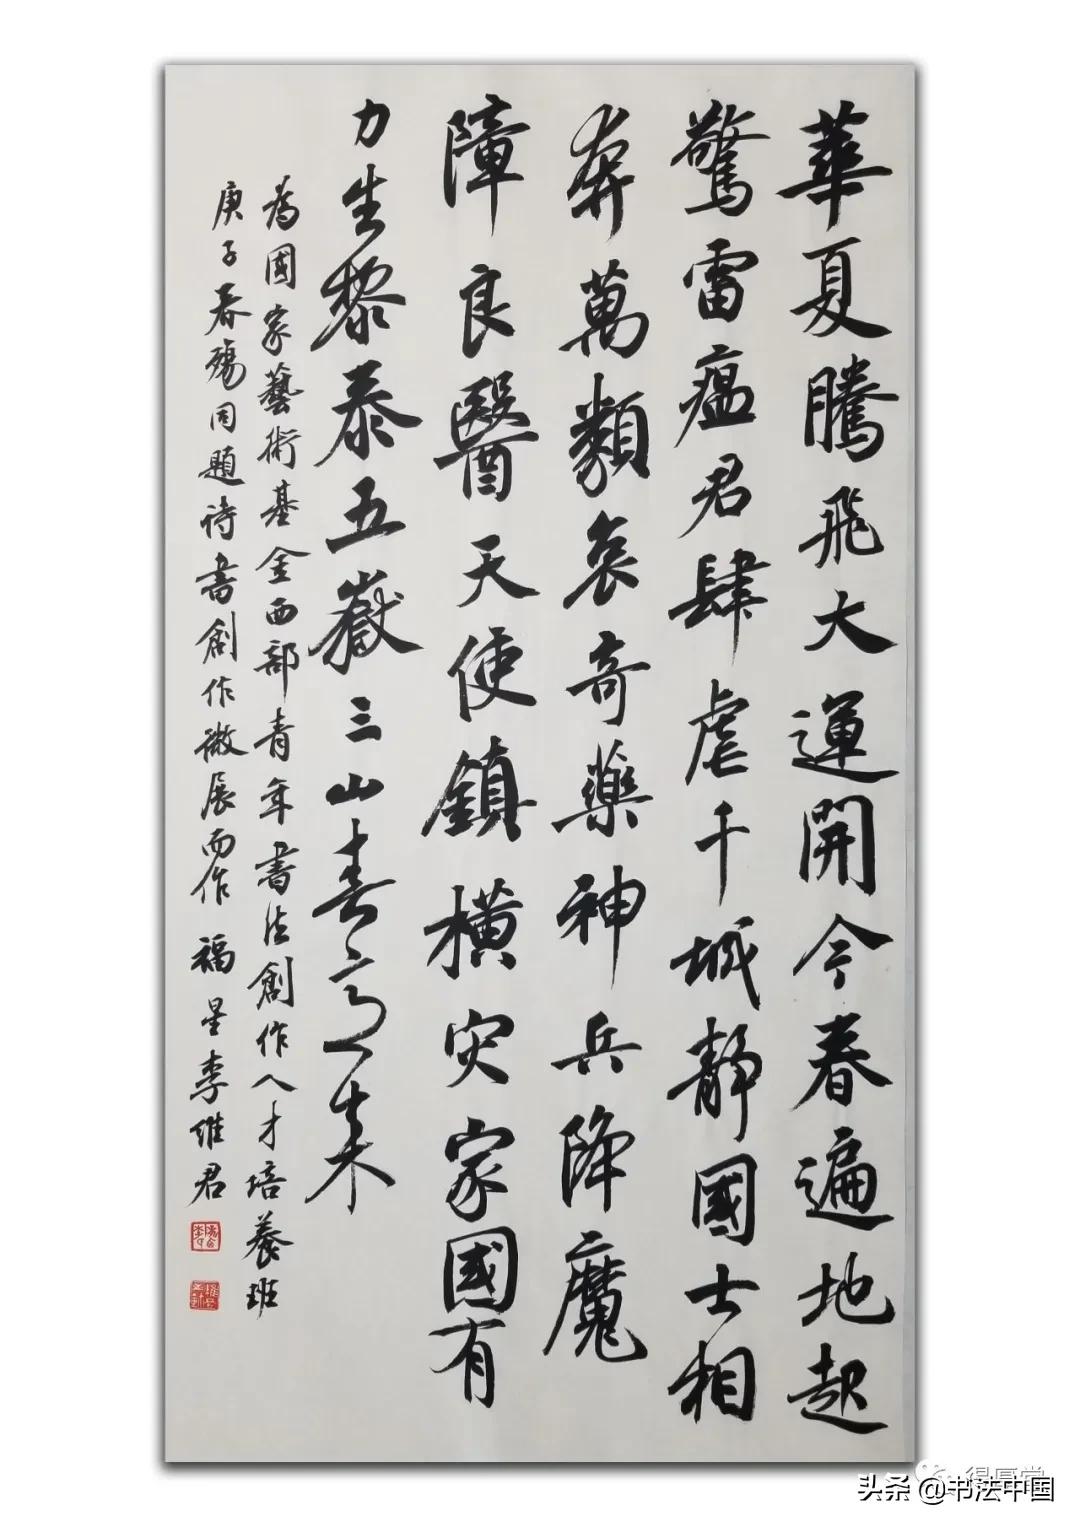 華夏騰飛大運開今春遍地起
驚雷瘟君肆虐千城靜國士相
奔萬類哀奇藥神兵降魔
障良醫天使鎮橫灾家國有
力生黎泰五嶽三山喜来
為國家藝術基金西部青年書法創作人才培養班
庚子春殤同題詩書創作微展而作 福星李維君
得厚堂
头条 @书法中国